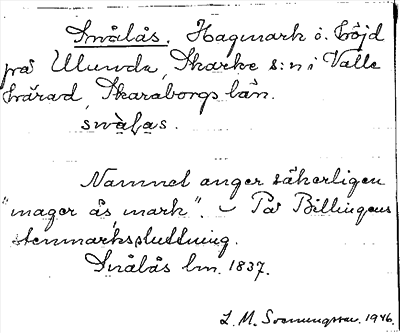 Snålås. Hagmark o. höjd
på Ulunda, Skarke s:n i Valle
härad, Skaraborgs län.
snàlas.
Namnet anger säkerligen
"mager ås, mark". – På Billingens
stenmarkssluttning.
Snålås lm. 1837.
L. M. Svenungsson. 1946.